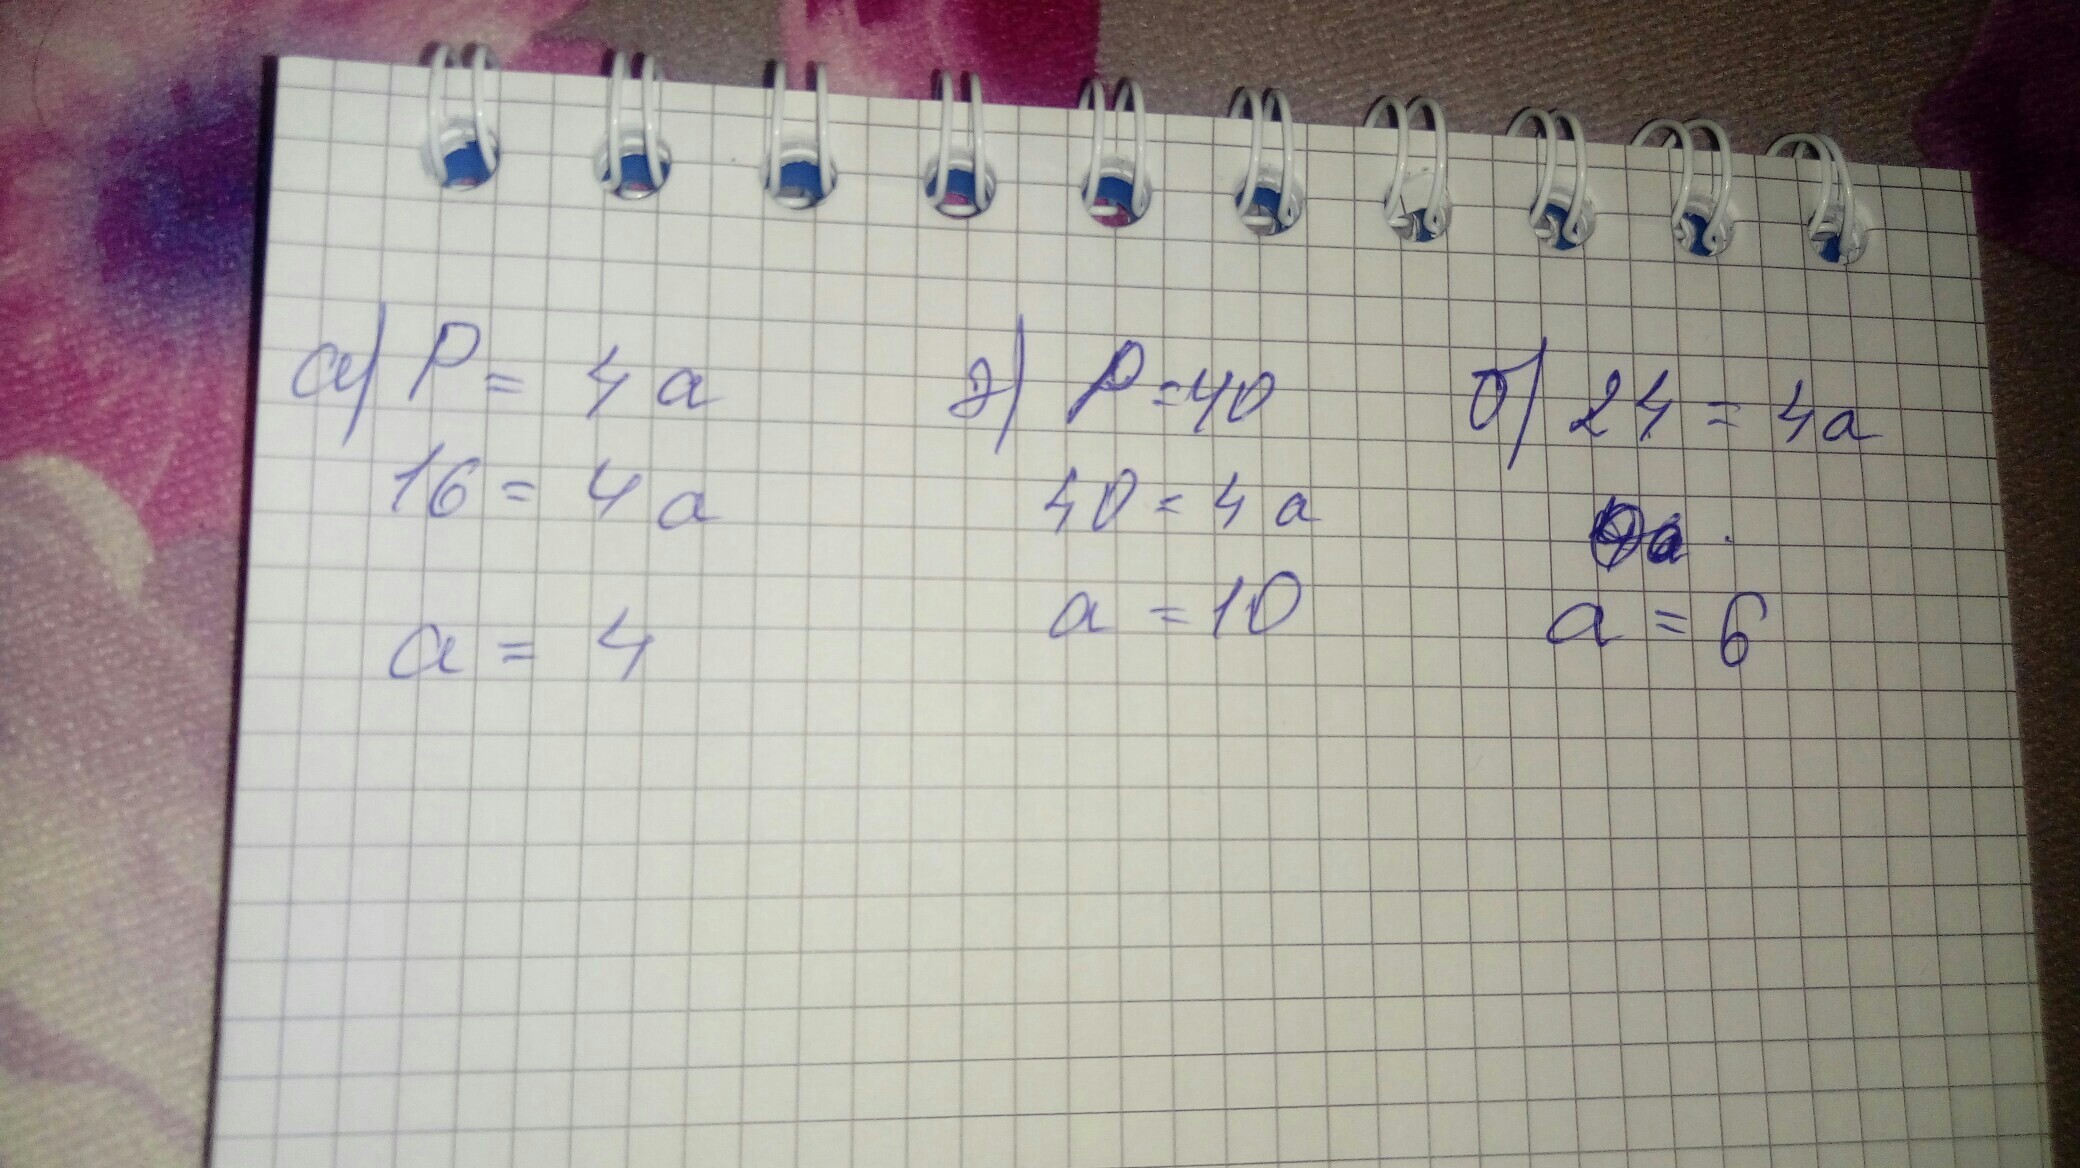 а) P = 4a
16 = 4a
a = 4
г) P = 40
40 = 4a
a = 10
б) 24 = 4a
a = 6